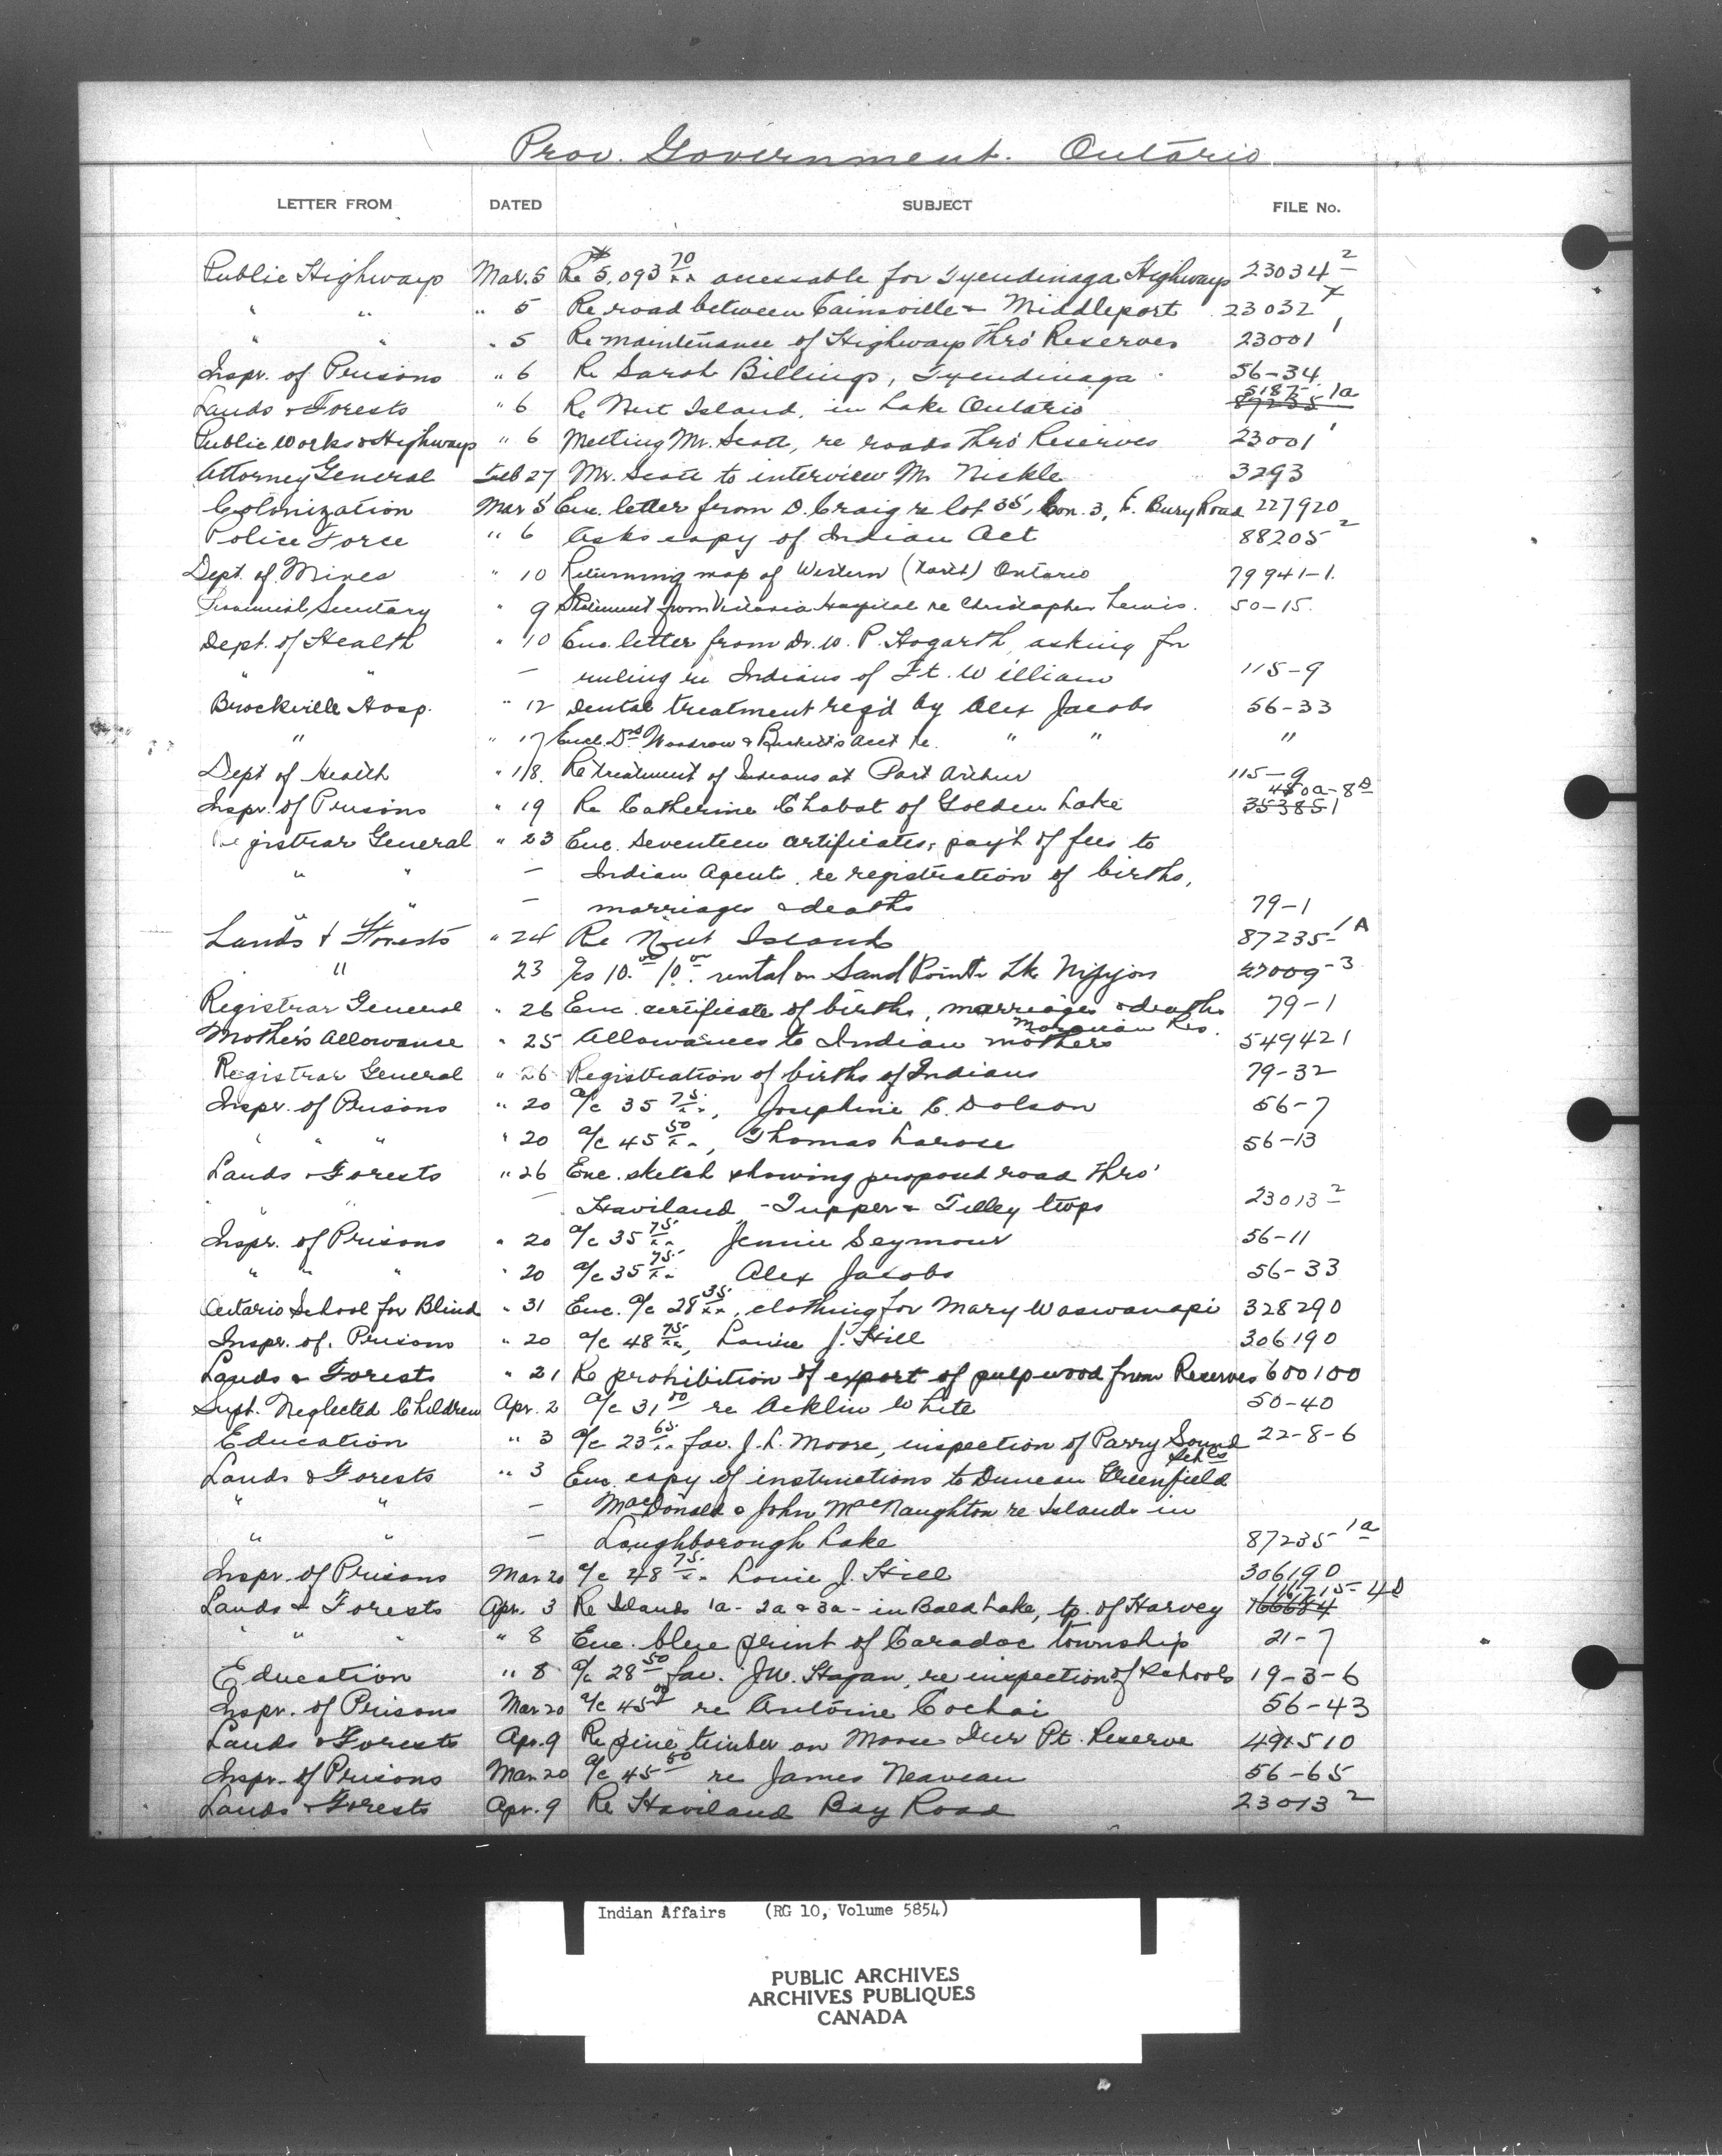 Prov. Government. Ontario
LETTER FROM DATED SUBJECT FILE No.
Public Highways Mar. 5 Re $5,093 70/xx accessable for Tyendinaga Highways 23034 2
" " " 5 Re road between Cainsville & Middleport 23032
" " " 5 Re maintenance of Highways thro' Reserves 23001 1
Inspr. of Prisons " 6 Re Sarah Billings, Tyendinaga 56-34
Lands & Forests " 6 Re Nut Island, in Lake Ontario 87235 1a
Public Works & Highways " 6 Meeting Mr. Scott, re roads thro' Reserves 23001 1
Attorney General Feb 27 Mr. Scott to interview Mr. Nickle 3293
Colonization Mar 5 Enc. letter from D. Craig re lot 35, Con. 3, E. Bury Road 227920
Police Force " 6 Asks copy of Indian Act 88205 2
Dept. of Mines " 10 Returning map of Western (North) Ontario 79941-1.
Provincial Secretary " 9 Statement from Victoria Hospital re Christopher Lewis. 50-15.
Dept. of Health " 10 Enc. letter from Dr. W. P. Hogarth, asking for
" " — ruling re Indians of Ft. William 115-9
Brockville Hosp. " 12 Dental treatment req'd by Alex Jacobs 56-33
" " 17 Encl. Drs Woodrow & Burkett's acct re. " " "
Dept of Health " 18. Re treatment of Indians at Port Arthur 115-9
Inspr. of Prisons " 19 Re Catherine Chabot of Golden Lake 353851 450a-8D
Registrar General " 23 Enc. Seventeen certificates, pay't of fees to
" " — Indian Agents, re registration of births,
" " — marriages & deaths 79-1
Lands & Forests " 24 Re Nut Island 87235- 1A
" 23 10.00 rental on Sand Point Lk Nipigon 27009-3
Registrar General " 26 Enc. certificate of births, marriages & deaths 79-1
Moravian Res.
Mother's Allowance " 25 Allowances to Indian mothers 549421
Registrar General " 26 Registration of births of Indians 79-32
Inspr. of Prisons " 20 a/c 35 75/xx, Josephine C. Dolson 56-7
" " " " 20 a/c 45 50/xx, Thomas Larose 56-13
Lands & Forests " 26 Enc. sketch showing proposed road thro'
" " — Haviland, - Tupper & Tilley twps 23013 2
Inspr. of Prisons " 20 a/c 35 75/xx Jennie Seymour 56-11
" " " " 20 a/c 35 75/xx Alex Jacobs 56-33
Ontario School for Blind " 31 Enc. a/c 28 35/xx, clothing for Mary Waswanapi 328290
Inspr. of. Prisons " 20 a/c 48 75/xx, Louie J. Hill 306190
Lands & Forests " 21 Re prohibition of export of pulpwood from Reserves 600100
Supt. Neglected Children Apr. 2 a/c 31 50 re Acklin White 50-40
Education " 3 a/c 23 65/xx fav. J. L. Moore, inspection of Parry Sound Schls 22-8-6
Lands & Forests " 3 Enc. copy of instructions to Duncan Greenfield
" " — MacDonald & John MacNaughton re Islands in
" " — Loughborough Lake 87235 1a
Inspr. of Prisons Mar. 20 a/c 48 75/xx Louie J. Hill 306190
Lands & Forests Apr. 3 Re Islands 1a - 2a & 3a - in Bald Lake, tp. of Harvey 116715-4D
" " " " 8 Enc. blue print of Caradoc township 21-7
Education " 8 a/c 28 50 fav. J.W. Hagan, re inspection of Schools 19-3-6
Inspr. of Prisons Mar. 20 a/c 45 00 re Antoine Cochai 56-43
Lands & Forests Apr. 9 Re pine timber on Moose Deer Pt. Reserve 491510
Inspr. of Prisons Mar. 20 a/c 45 50 re James Neaveau 56-65
Lands & Forests Apr. 9 Re Haviland Bay Road 23013 2
Indian Affairs (RG 10, Volume 5854)
PUBLIC ARCHIVES
ARCHIVES PUBLIQUES
CANADA